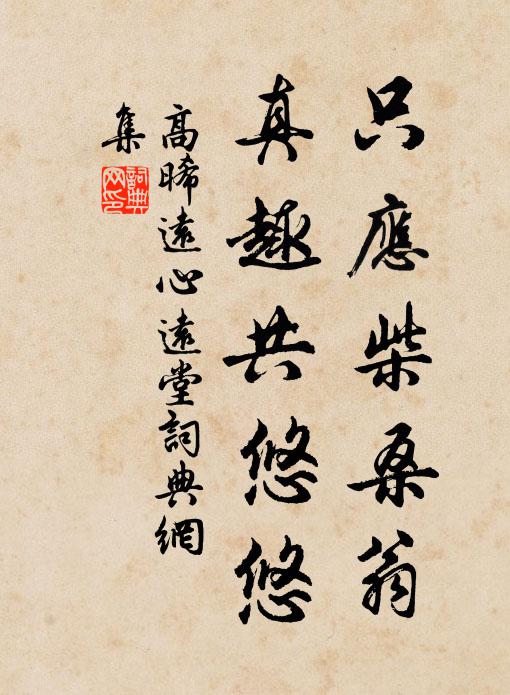 只應柴桑翁
真趣共悠悠
高晞遠心遠堂詞典網
集
詞典
网印